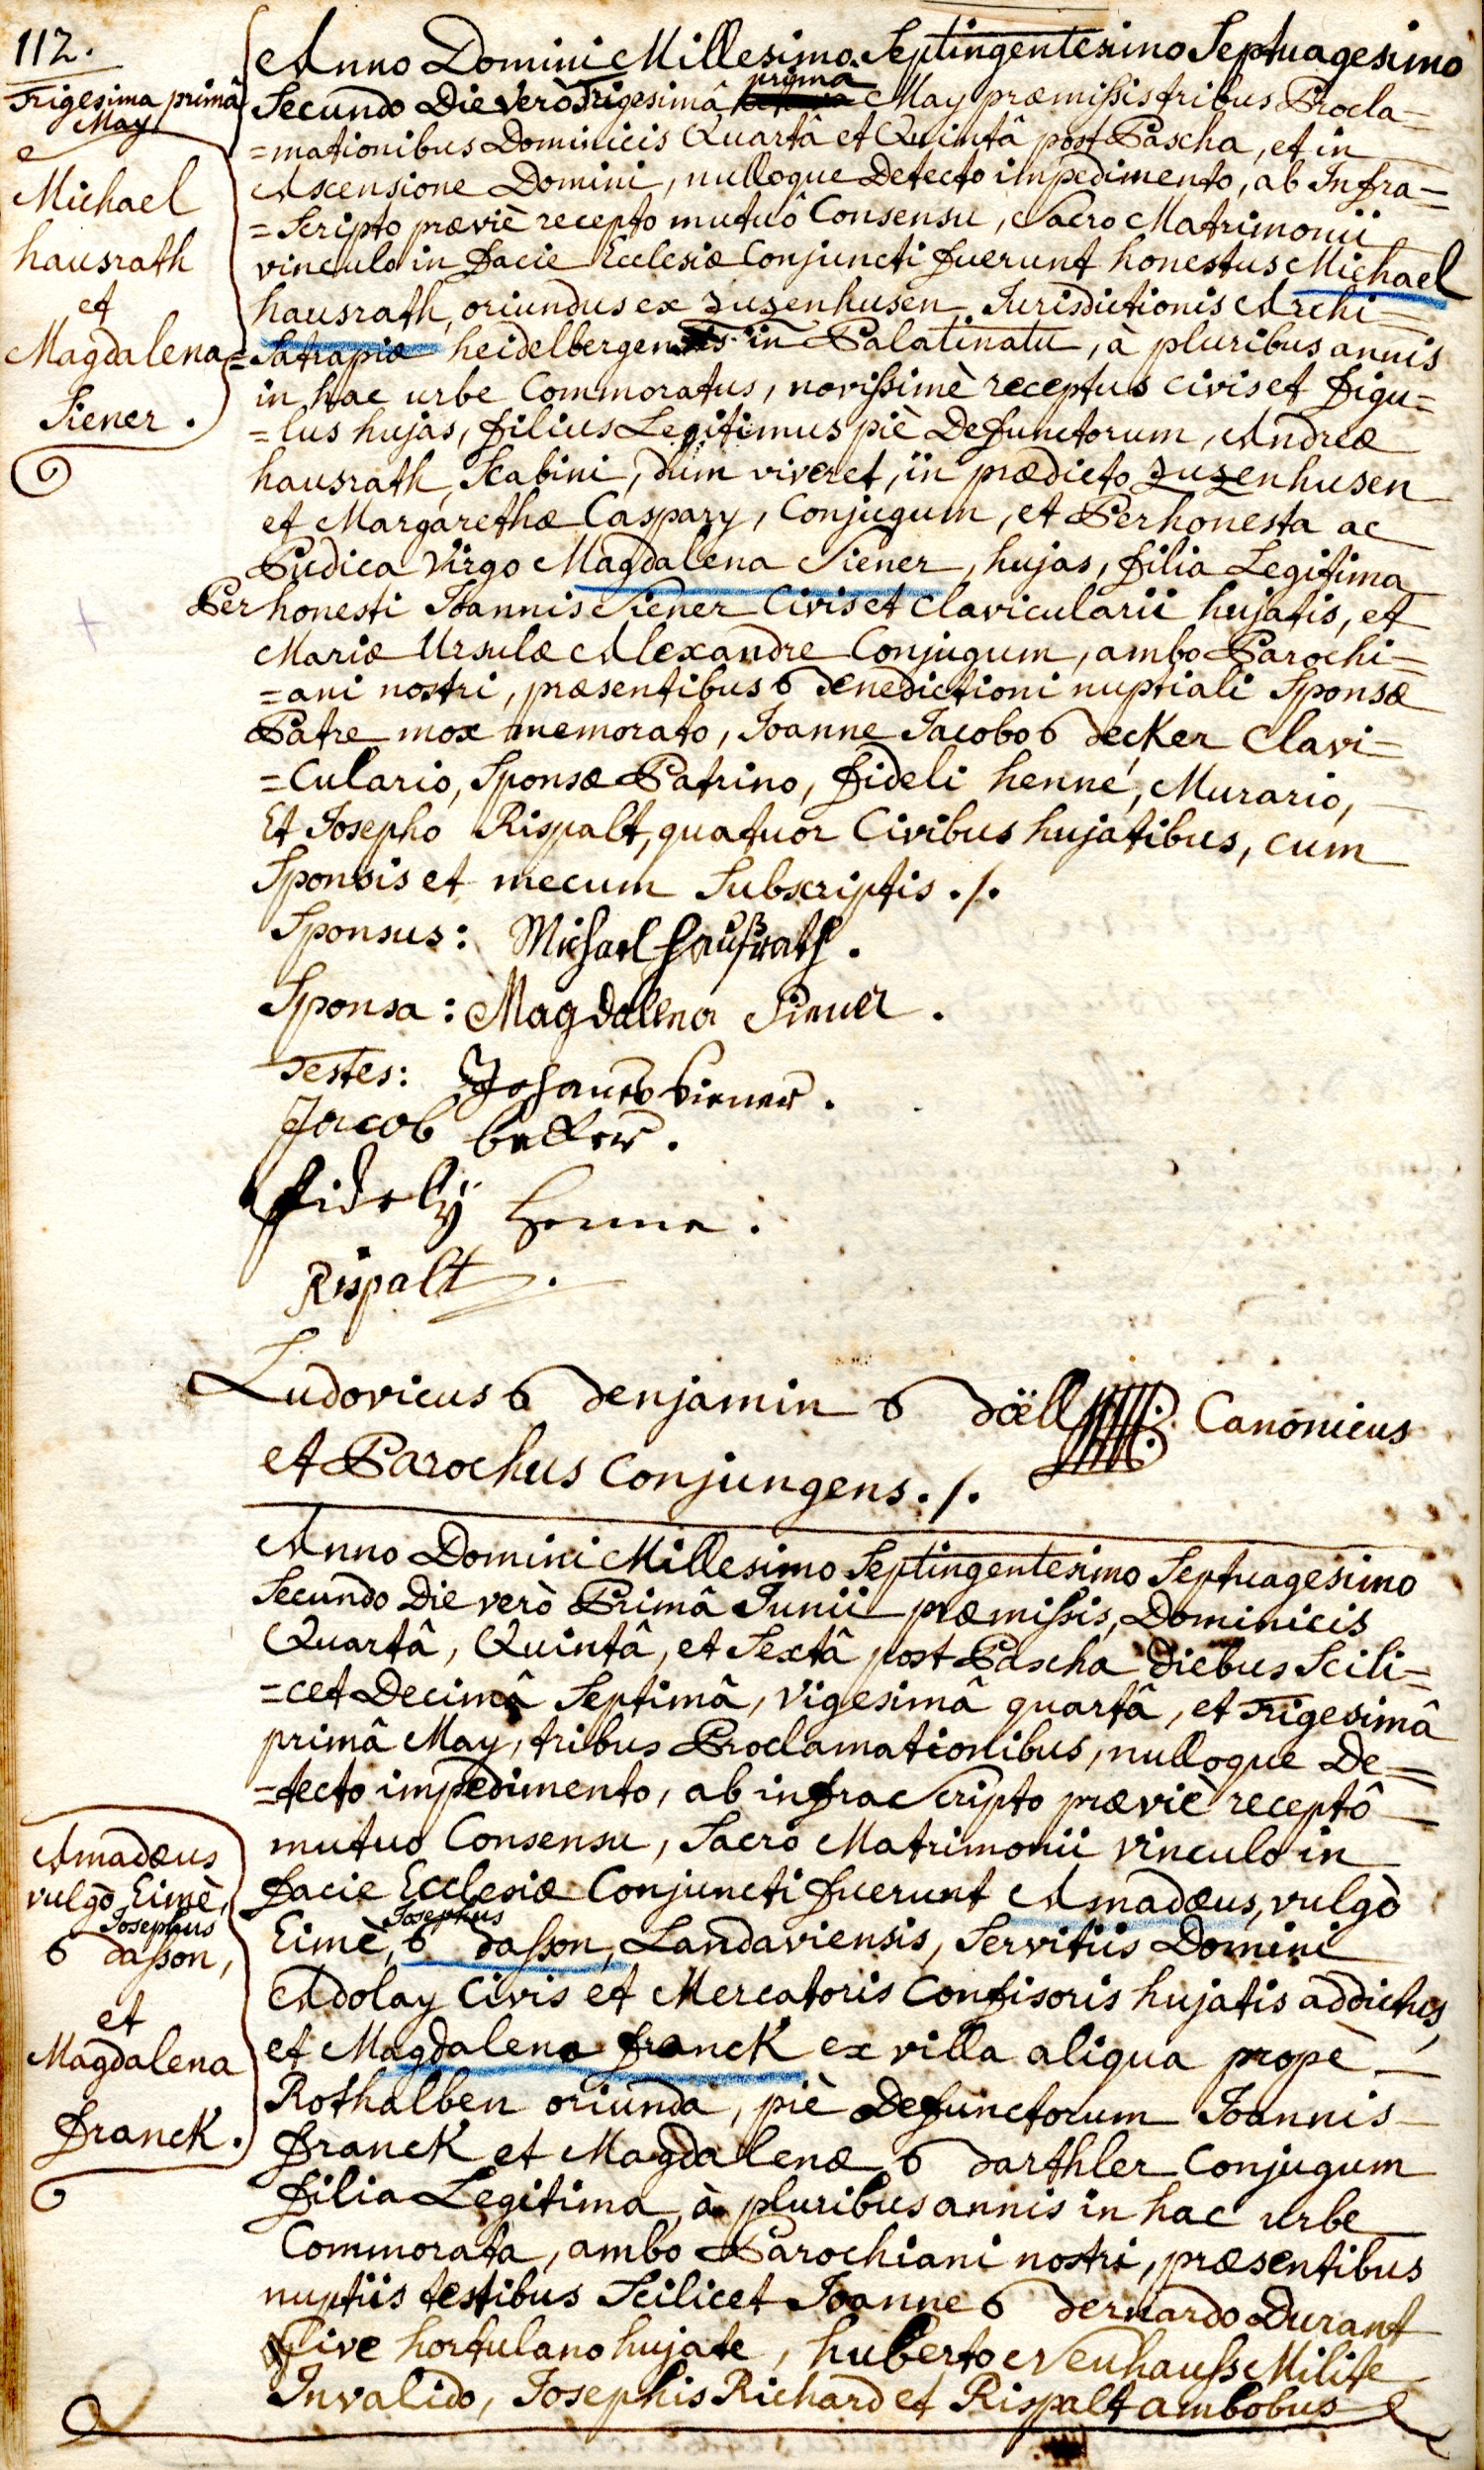 112.
Trigesima primâ
May
Michael
hausrath
et
Magdalena
Siener.
Anno Domini Millesimo Septingentesimo Septuagesimo
Secundo Die verò Trigesimâ primâ May præmissis tribus Procla=
=mationibus Dominicis Quartâ et Quintâ post Pascha, et in
Ascensione Domini, nulloque Detecto impedimento, ab Infra=
=Scripto præviè recepto mutuô Consensu, Sacro Matrimonii
vinculo in facie Ecclesiæ Conjuncti fuerunt honestus Michael
hausrath, oriundus ex Zuzenhusen Jurisdictionis Archi=
=Satrapiæ heidelbergensis in Palatinatu, à pluribus annis
in hac urbe Commoratus, novissimè receptus civis et figu=
=lus hujas, filius Legitimus piè Defunctorum, Andreæ
hausrath, Scabini, dum viveret, in prædicto Zuzenhusen
et Margarethæ Caspary, Conjugum, et Perhonesta ac
Pudica Virgo Magdalena Siener, hujas, filia Legitima
Perhonesti Joannis Siener Civis et Clavicularii hujatis, et
Mariæ Ursulæ Alexandre Conjugum, ambo Parochi=
=ani nostri, præsentibus Benedictioni nuptiali Sponsæ
Patre mox memorato, Joanne Jacobo Becker Clavi=
=Culario, Sponsæ Patrino, fideli henné, Murario,
Et Josepho Rispalt, quatuor Civibus hujatibus, cum
Sponsis et mecum Subscriptis ./.
Sponsus: Michael Haußrath.
Sponsa: Magdalena Siener.
Testes: Johannes Siener.
Jacob becker.
fidely Henne:
Rispalt.
Ludovicus Benjamin Böell Canonicus
et Parochus Conjungens ./.
Anno Domini Millesimo Septingentesimo Septuagesimo
Secundo Die verò Primâ Junii præmissis, Dominicis
Quartâ, Quintâ, et Sextâ post Pascha diebus Scili=
=cet Decimâ Septimâ, Vigesimâ quartâ, et Trigesimâ
primâ May, tribus Proclamationibus, nulloque De=
=tecto impedimento, ab infra Scripto præviè receptô
mutuo Consensu, Sacro Matrimonii vinculo in
facie Ecclesiæ Conjuncti fuerunt Amadæus, vulgò
Eimè, Josephus Basson, Landaviensis, Servitiis Domini
Adolay Civis et Mercatoris Confisoris hujatis addictus,
et Magdalena franck ex villa aliqua propè
Rothalben oriunda, piè Defunctorum Joannis
franck et Magdalenæ Barthler Conjugum
filia Legitima, à pluribus annis in hac urbe
Commorata, ambo Parochiani nostri, præsentibus
nuptiis testibus Scilicet Joanne Bernardo Durant
Cive hortulano hujate, huberto Neuhauss Milite
Invalido, Josephis Richard et Rispalt ambobus
Amadæus
vulgò Eimè,
Josephus
Basson,
et
Magdalena
franck.